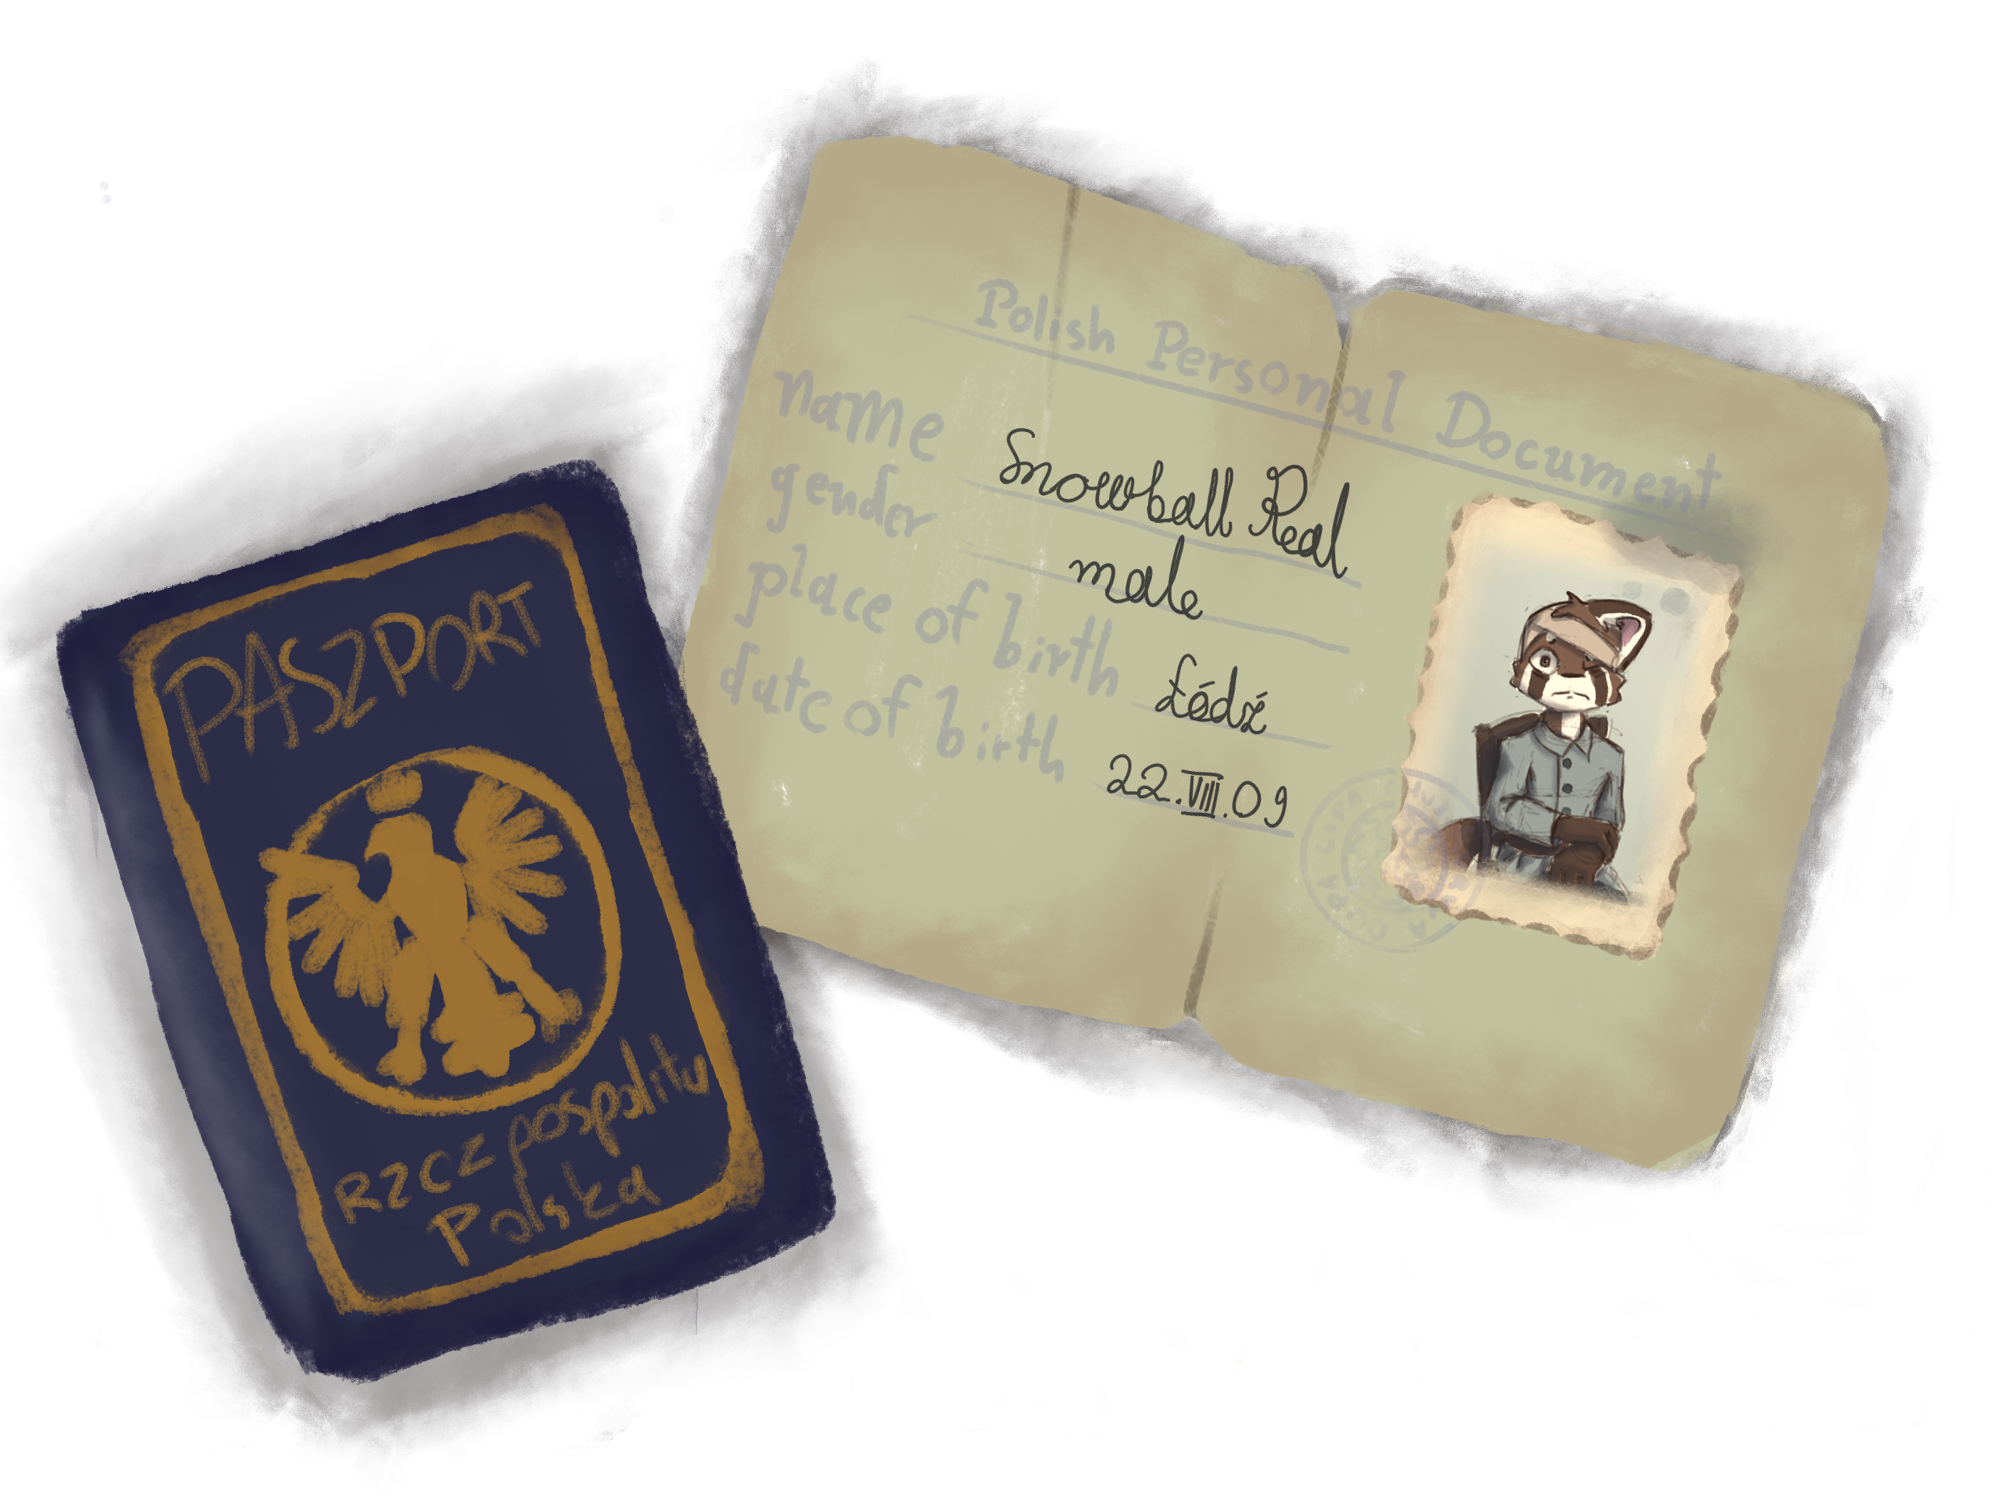 PASZPORT
Rzczpospolitu
Polska
Polish Personal Document
name Snowball Real
gender male
place of birth Łódź
date of birth 22.VIII.09